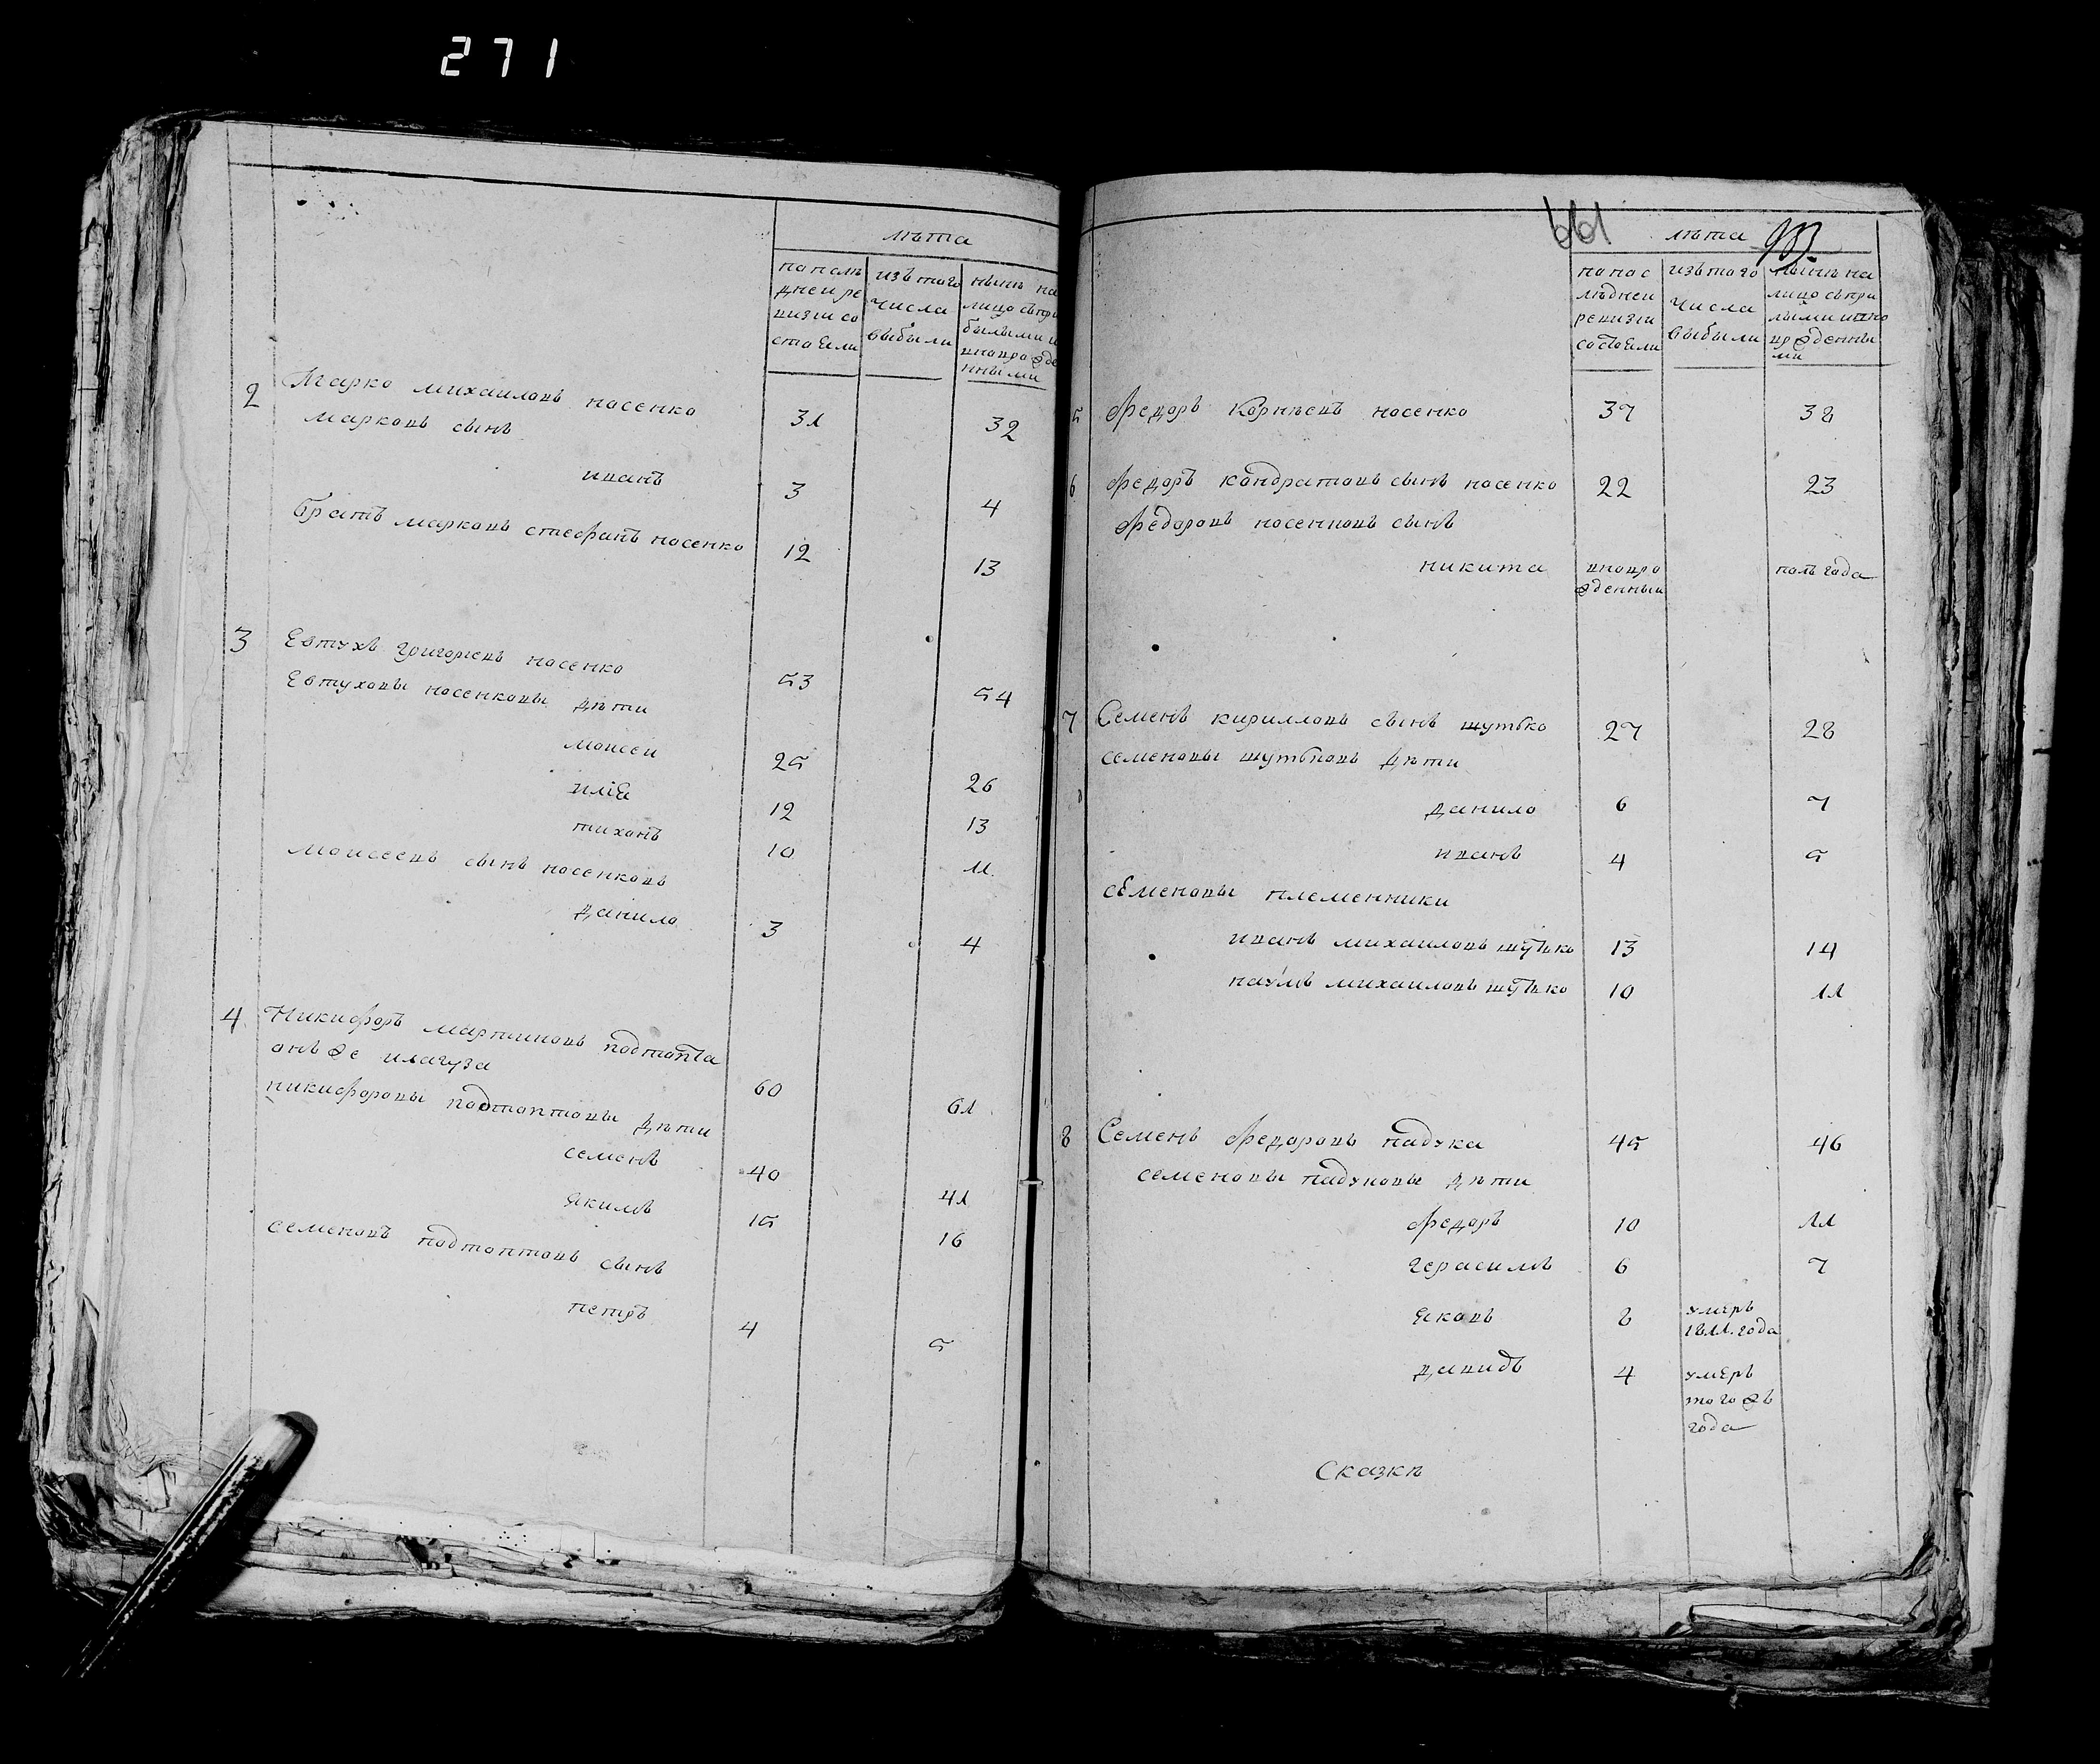 271
лѣта
попослѣ изъ того нынѣ на
дней ре числа лицо съпри
визіи со выбыли былыми и
стояли вновро жде
нными
2 Марко михаиловъ носенко 31 32
марковъ сынъ
иванъ 3 4
братъ марковъ стефанъ носенко 12 13
3 Евтухъ григориевъ носенко 53 54
Евтуховы носенковы дѣти
моисеи 25 26
илія 12 13
тихонъ 10 11
моисеевъ сынъ носенковъ
данило 3 4
4 Никифоръ мартиновъ подтопта
онъ же 60 61
никифоровы подтоптовы дѣти
семенъ 40 41
якимъ 15 16
семеновъ подтоптовъ сынъ
петръ 4 5
661
лѣта
попос изъ того нынѣ на
лѣдней числа лицо съпри
ревизіи выбыли
состояли
5 федоръ Корнѣевъ носенко 37 38
6 федоръ кондратовъ сынъ носенко 22 23
федоровъ носенковъ сынъ
никита вновро полъ года
жденный
7 Семенъ кирилловъ сынъ шутько 27 28
семеновы шутьковъ дѣти
данило 6 7
иванъ 4 5
семеновы племенники
иванъ михаиловъ шутько 13 14
наумъ михаиловъ шутько 10 11
8 Семенъ федоровъ падука 45 46
семеновы падуковы дѣти
федоръ 10 11
герасимъ 6 7
яковъ 8 умеръ
1811. года
давидъ 4 умеръ
того жъ
года
Сказкѣ